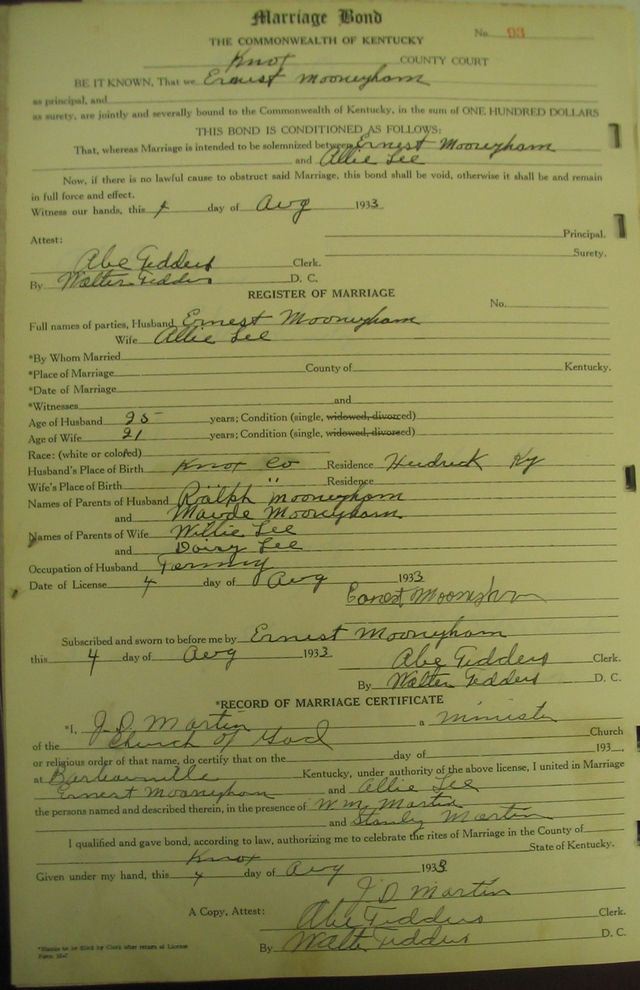 Marriage Bond
No. 93
THE COMMONWEALTH OF KENTUCKY
Knox COUNTY COURT
BE IT KNOWN, That we Ernest Mooneyham
as principal, and
as surety, are jointly and severally bound to the Commonwealth of Kentucky, in the sum of ONE HUNDRED DOLLARS
THIS BOND IS CONDITIONED AS FOLLOWS:
That, whereas Marriage is intended to be solemnized between Ernest Mooneyham
and Allie Lee
Now, if there is no lawful cause to obstruct said Marriage, this bond shall be void, otherwise it shall be and remain
in full force and effect.
Witness our hands, this 4 day of Aug 1933
Principal.
Attest:
Surety.
Abe Tedders Clerk.
By Walter Tedders D. C.
REGISTER OF MARRIAGE
No.
Full names of parties, Husband Ernest Mooneyham
Wife Allie Lee
*By Whom Married
*Place of Marriage County of Kentucky.
*Date of Marriage
*Witnesses and
Age of Husband 25 years; Condition (single, widowed, divorced)
Age of Wife 21 years; Condition (single, widowed, divorced)
Race: (white or colored)
Husband's Place of Birth Knox Co Residence Ky
Wife's Place of Birth " " Residence
Names of Parents of Husband Ralph Mooneyham
and Maude Mooneyham
Names of Parents of Wife Willie Lee
and Daisy Lee
Occupation of Husband
Date of License 4 day of Aug 1933
Ernest Mooneyham
Subscribed and sworn to before me by Ernest Mooneyham
this 4 day of Aug 1933
Abe Tedders Clerk.
By Walter Tedders D. C.
*RECORD OF MARRIAGE CERTIFICATE
*I, J. D. Martin a Minister
of the Church of God Church
or religious order of that name, do certify that on the day of 193 ,
at Barbourville Kentucky, under authority of the above license, I united in Marriage
Ernest Mooneyham and Allie Lee
the persons named and described therein, in the presence of Wm Martin
and Stanly Martin
I qualified and gave bond, according to law, authorizing me to celebrate the rites of Marriage in the County of
Knox State of Kentucky.
Given under my hand, this 4 day of Aug 1933
J. D. Martin
A Copy, Attest: Abe Tedders Clerk.
By Walter Tedders D. C.
*Blanks to be filled by Clerk after return of License